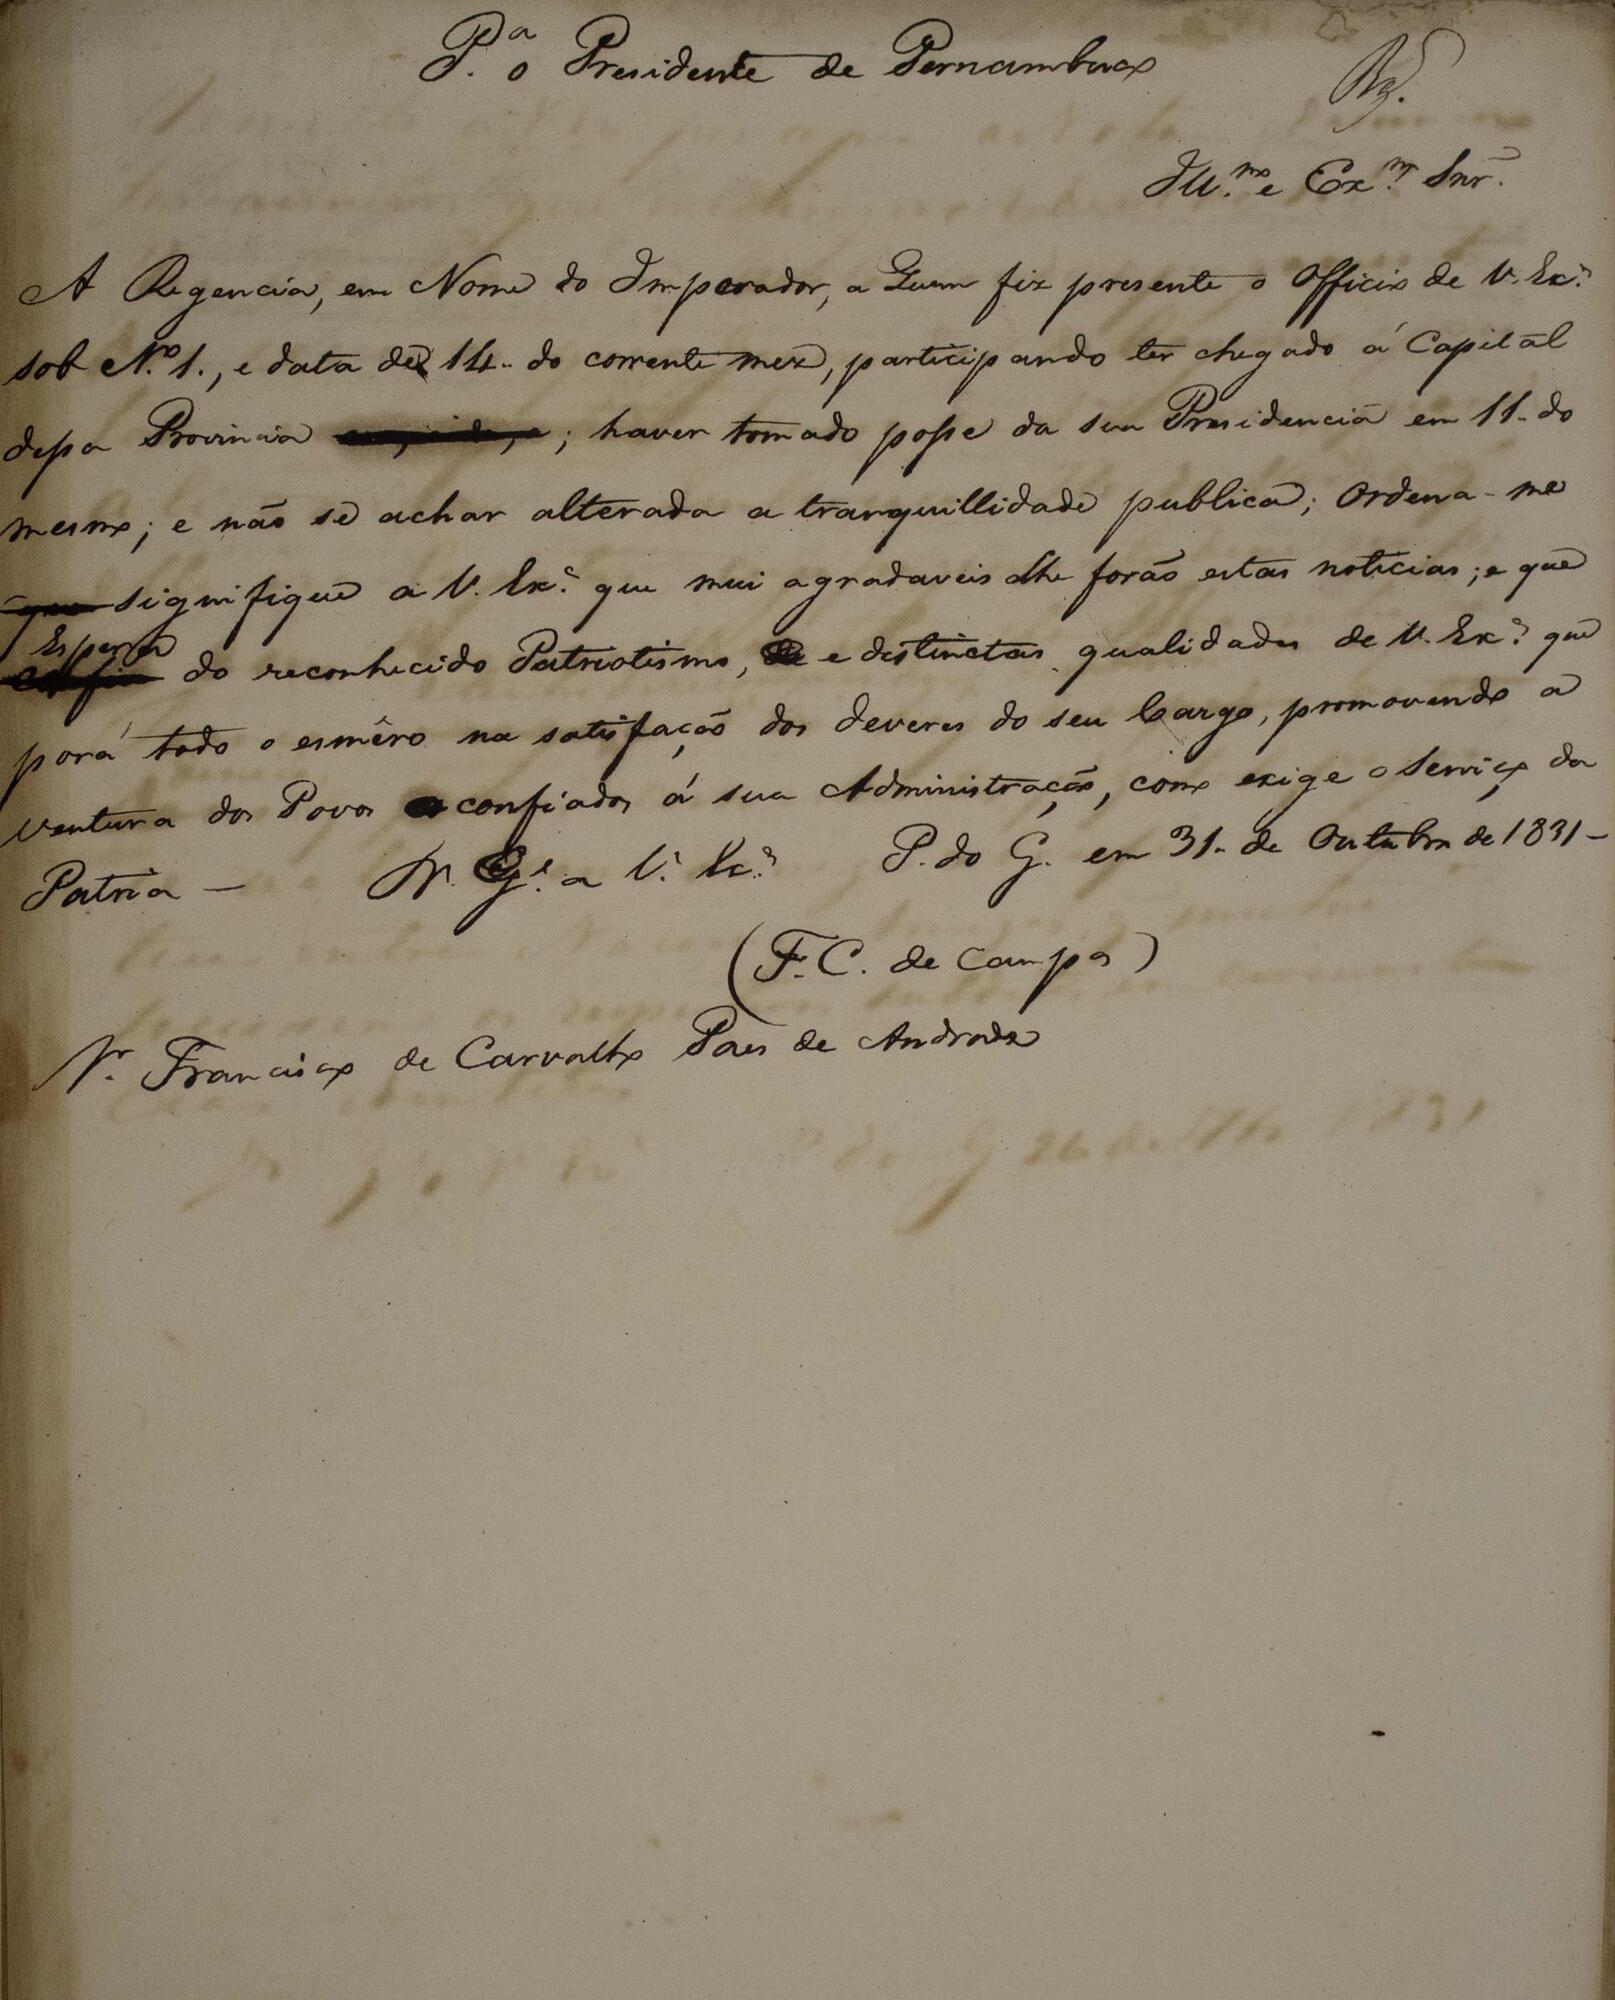 P.ª o Presidente de Pernambuco
Rg.
Ill.mo e Ex.mo Snr.
A Regencia, em Nome do Imperador, a Quem fiz presente o Officio de V. Ex.ª
sob N.º 1., e data de 14 do corrente mez, participando ter chegado á Capital
dessa Provincia ; haver tomado posse da sua Presidencia em 11 do
mesmo; e não se achar alterada a tranquillidade publica; Ordena-me
que signifique a V. Ex.ª que mui agradaveis lhe forão estas noticias; e que
Espera
do reconhecido Patriotismo, e distinctas qualidades de V. Ex.ª que
porá todo o esmêro na satisfação dos deveres do seu Cargo, promovendo a
ventura dos Povos confiados á sua Administração, como exige o Serviço da
Patria — D. G.e a V. Ex.ª P. do G. em 31 de Outubro de 1831 —
(F. C. de Campos)
Sr. Francisco de Carvalho Paes de Andrade